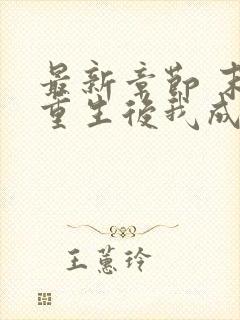 最新章節 末
重生後我成
王蕙玲